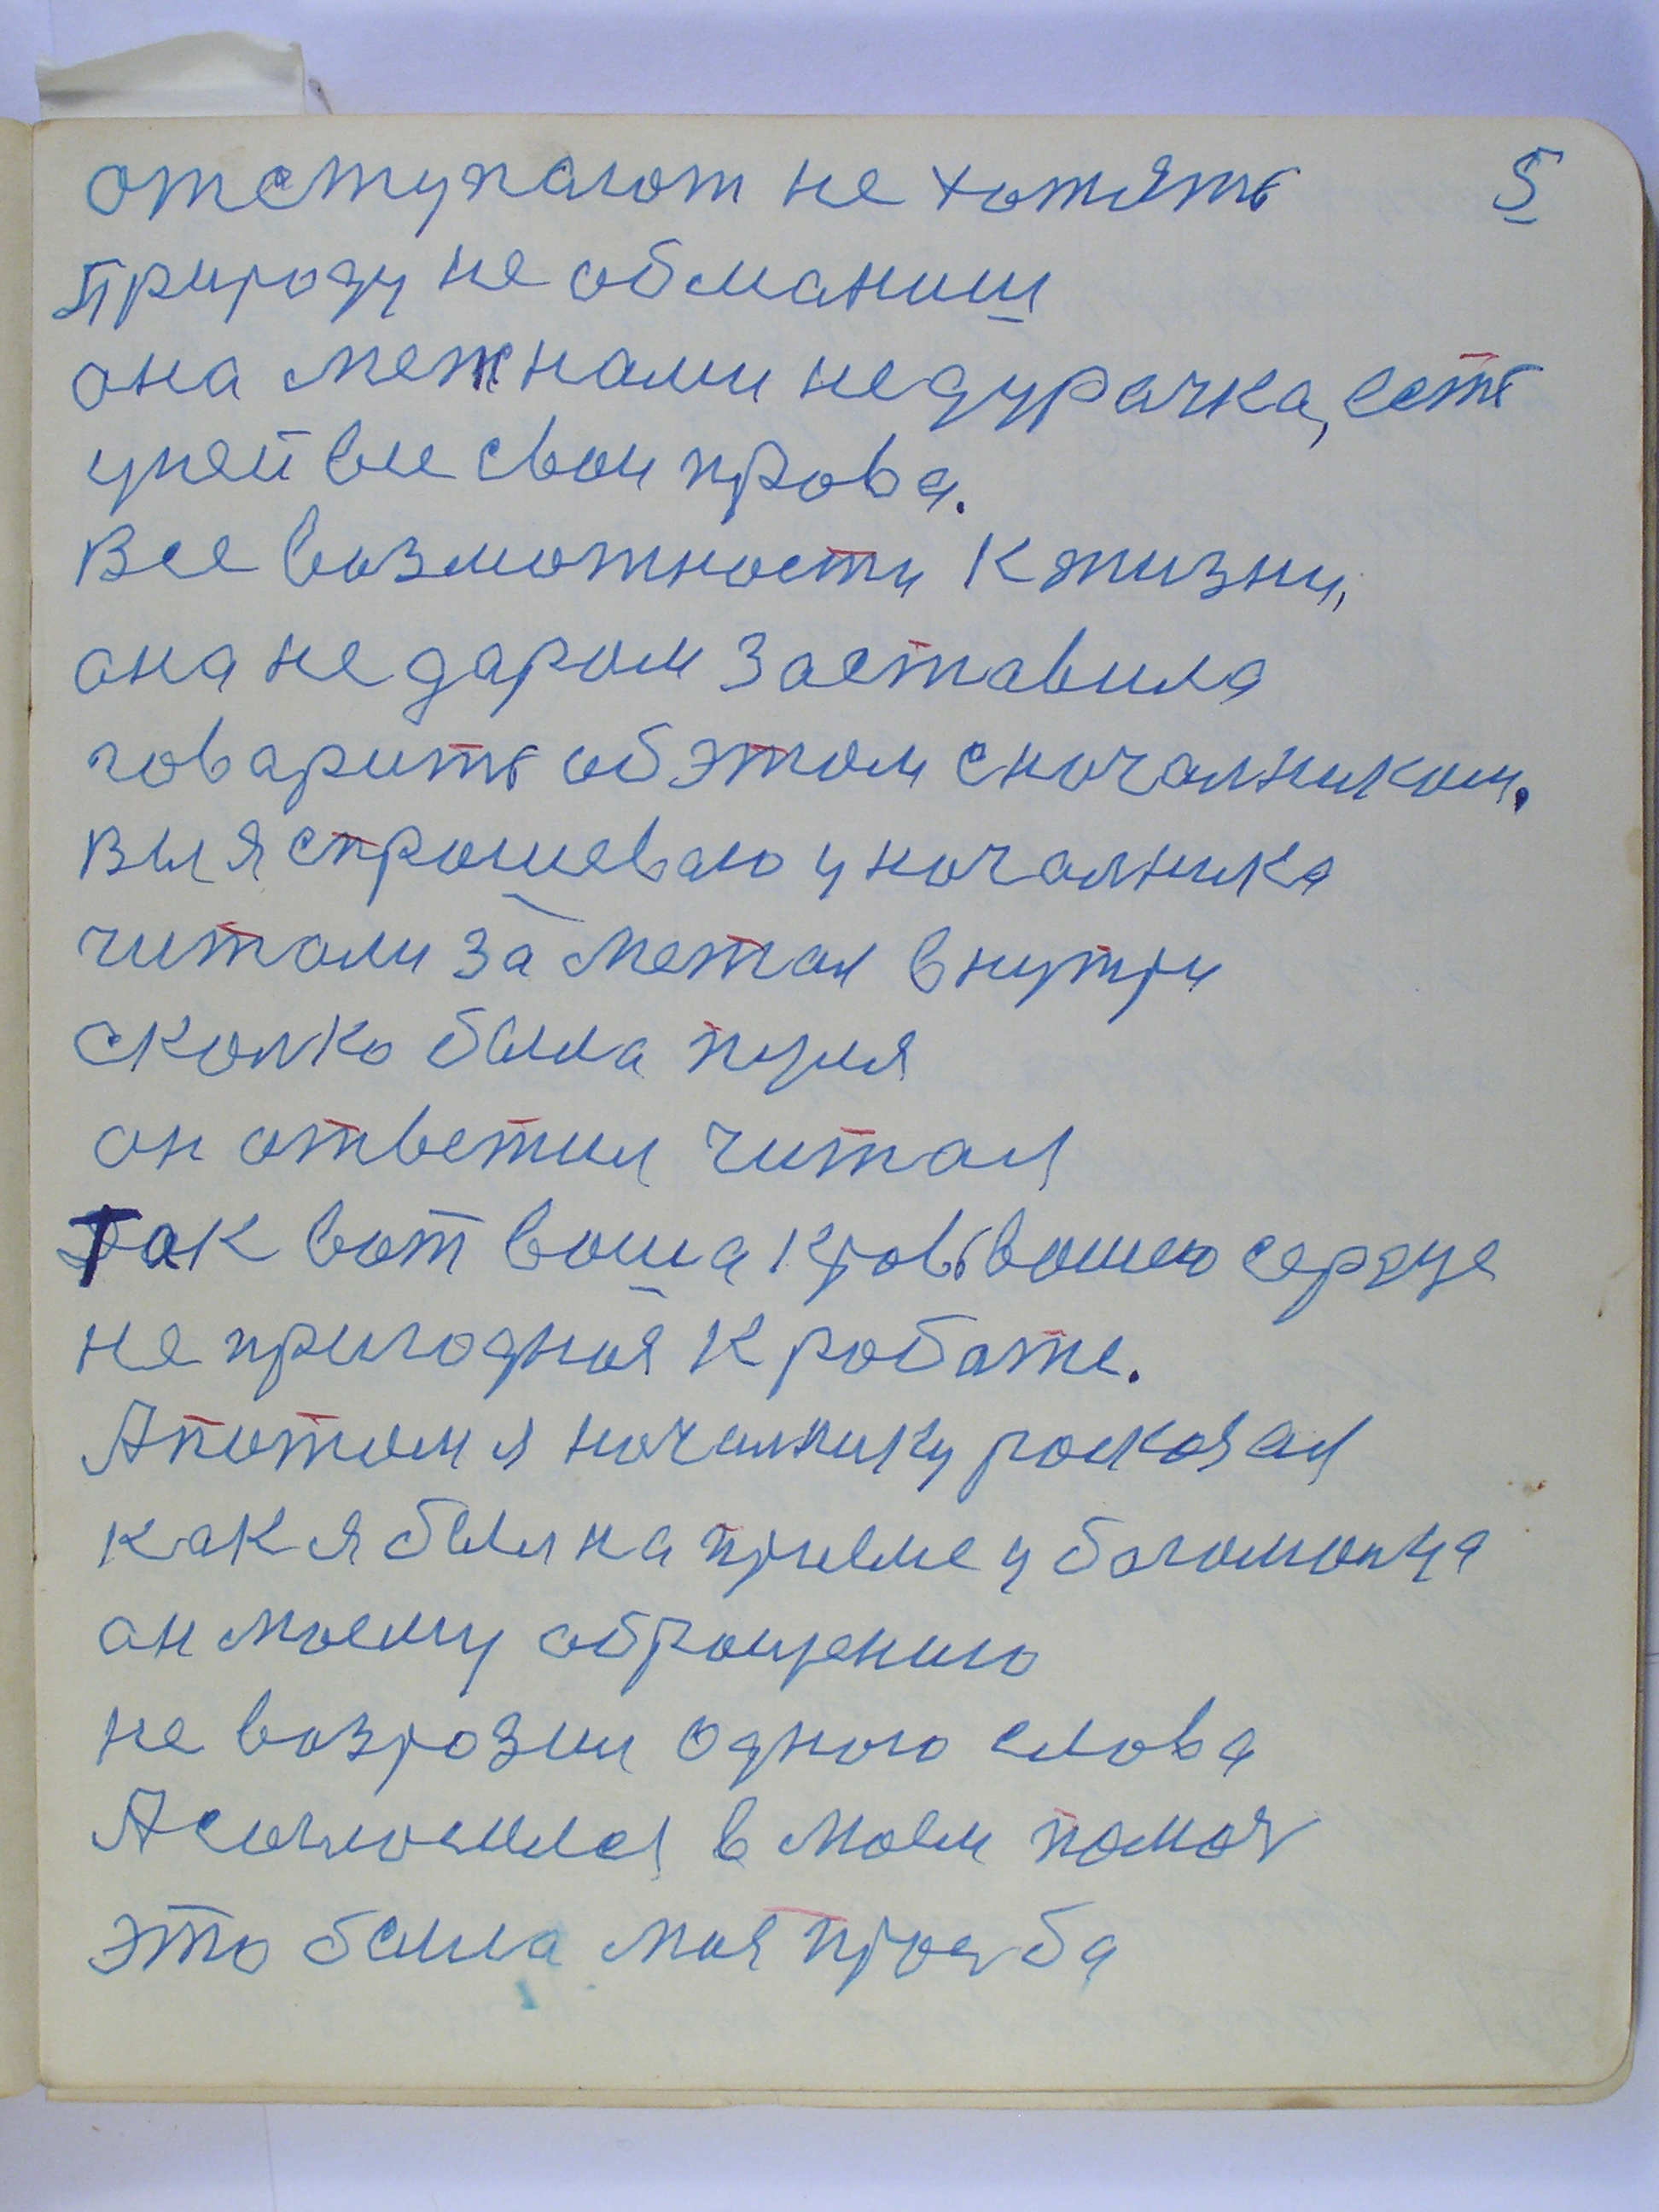 отступают не хотять 5
природу не обманиш
она меж нами не дурачка, есть
уней вси свои права.
Все возможности к жизни,
она не даром заставила
говарить об этом с началником.
Вы я спрошеваю у началника
читали за метал внутри
сколко была пуля
он ответил читал
Так вот ваша кровь вашею сердце
не пригодная к работе.
А потом я началнику расказал
как я был на приеме у богомолца
он моему обращению
не возрозил одного слова
А согласился в моем помоч
это была моя прозьба